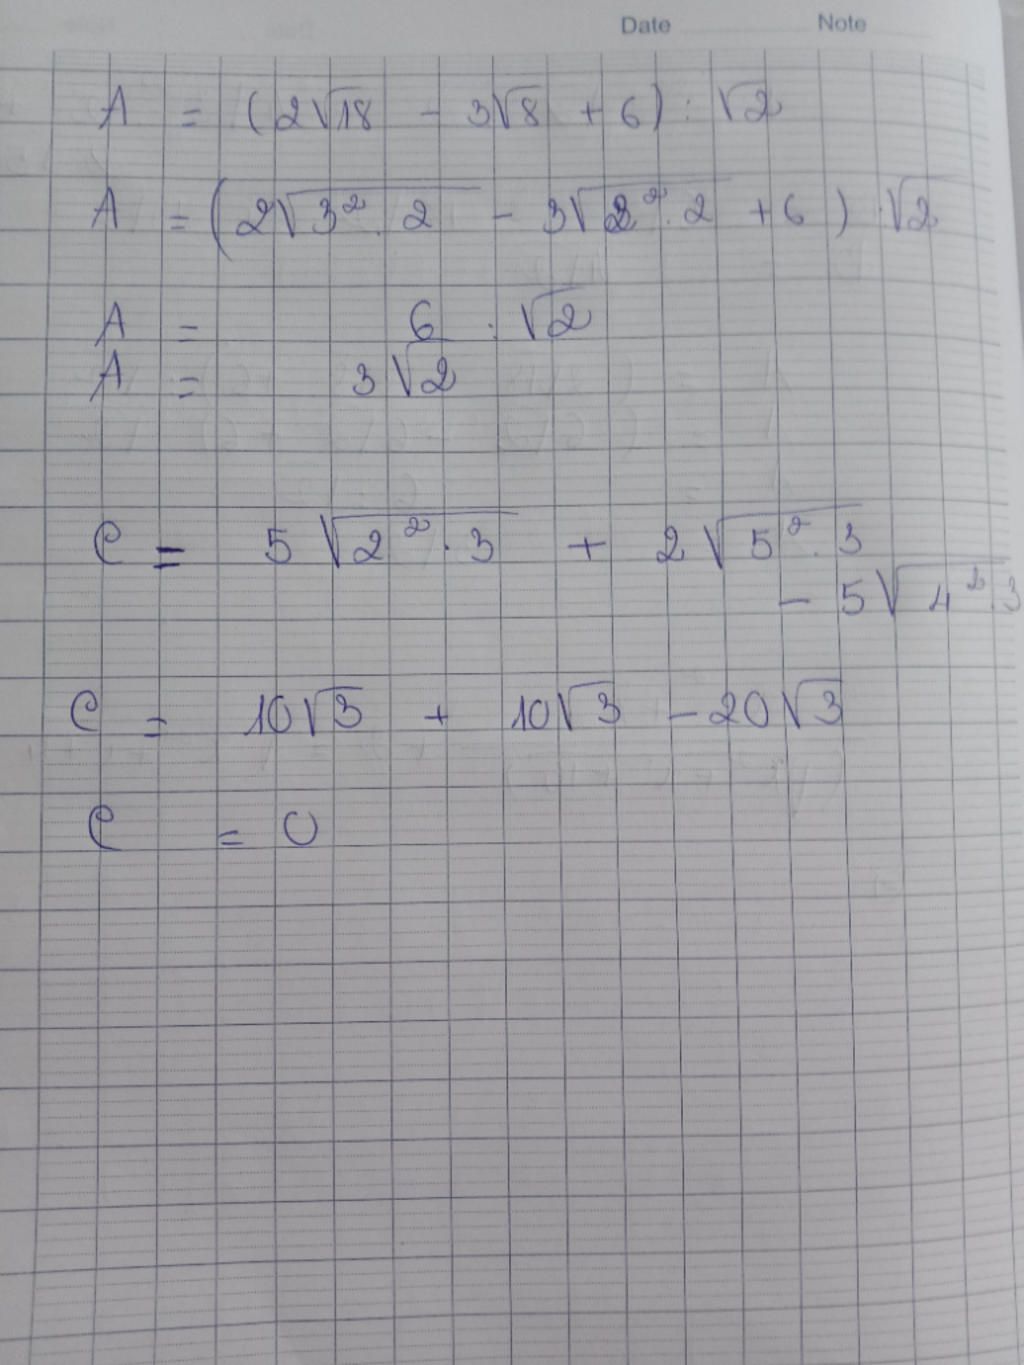 Date Note
A = (2√18 - 3√8 + 6) : √2
A = (2√3².2 - 3√2².2 + 6) : √2
A = 6 : √2
A = 3√2
C = 5√2².3 + 2√5².3
- 5√4².3
C = 10√3 + 10√3 - 20√3
C = 0